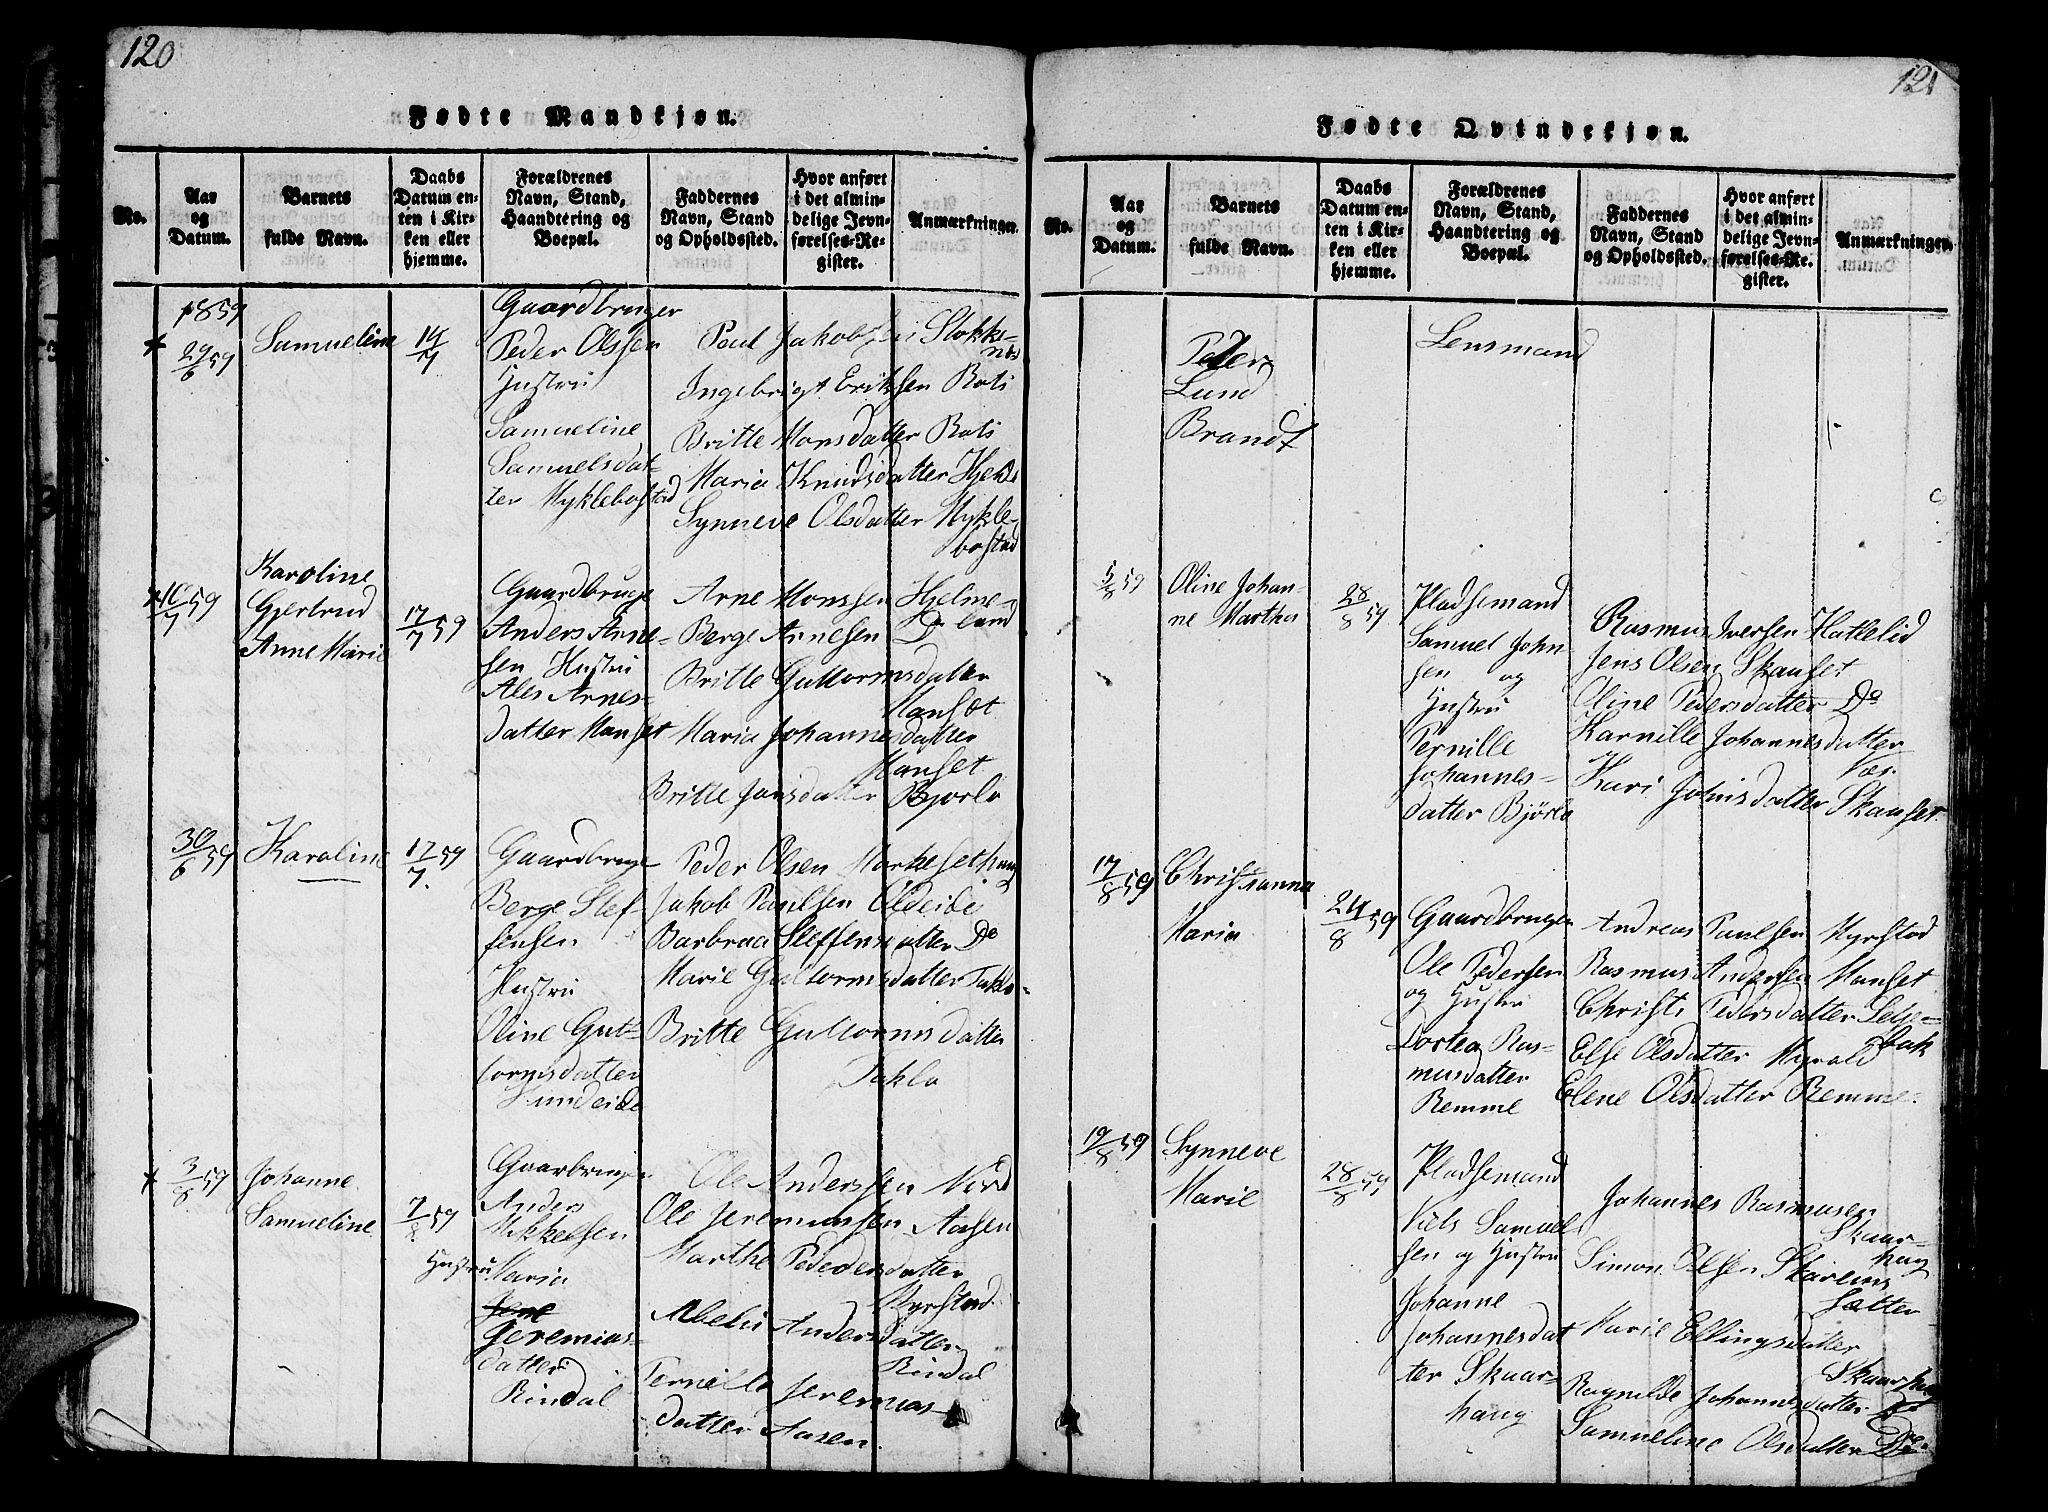 120
Fødte Mandkjøn.
No.
Aar og Datum.
Barnets fulde Navn.
Daabs Datum enten i Kirken eller hjemme.
Forældrenes Navn, Stand, Haandtering og Boepæl.
Faddernes Navn, Stand og Opholdssted.
Hvor anført i det almindelige Jevnførelses-Register.
Anmærkninger.
1859
29/6 59
Samueline
14/7
Gaardbruger
Peder Olsen
Hustru
Samueline
Samuelsdat-
ter Myklebostad
Poul Jakobsen Stokke-
nes
Ingebrigt Eriksen Roti
Britte Monsdatter Roti
Maria Knudsdatter Hjelle
Synneve Olsdatter Mykle-
bostad
10/7 59
Karoline
Gjertrud
Anne Marie
17/7 59
Gaardbruge
Anders Arne-
sen Hustru
Ales Arnes-
datter Manset
Arne Monssen Hjelme-
land
Berge Arnesen Do
Britte Guttormsdatter
Mansæt
Maria Johannesdatter
Manset
Britte Jonsdatter Bjorlo
30/6 59
Karoline
17/7 59
Gaardbruge
Berge Stef-
fensen
Hustru
Oline Gut-
tormsdatter
Lundeide
Peder Olsen Markesethaug
Jakob Paulsen Oldeide
Barbraa Steffensdatter Do
Marie Guttormsdatter Taklo
Britte Guttormsdatter
Taklo
3/8 59
Johanne
Samueline
7/8 59
Gaarbruge
Anders
Mikkelsen
Hustru Maria
Jeremias-
datter
Rindal
Ole Anderssen Nord
Ole Jeremiassen Aasen
Marthe Pededersdatter
Myrstad
Abelu Andersdatter
Rindal
Pernille Jeremias-
datter Aasen.
121
Fødte Qvindekjøn.
No.
Aar og Datum.
Barnets fulde Navn.
Daabs Datum enten i Kirken eller hjemme.
Forældrenes Navn, Stand, Haandtering og Boepæl.
Faddernes Navn, Stand og Opholdssted.
Hvor anført i det almindelige Jevnførelses-Register.
Anmærkninger.
Peder
Lund
Brandt
Lensmand
5/8 59
Oline Johan-
ne Martha
28/8 59
Pladsemand
Samuel John-
sen og
Hustru
Pernille
Johannes-
datter Bjørlo
Rasmus Iversen Hatlelid
Jens Olsen Skanset
Oline Pedersdatter Do
Karnille Johannesdatter
Næs
Kari Johnsdatter Skanset.
17/8 59
Christianna
Maria
24/8 59
Gaardbruger
Ole Pedersen
og Hustru
Dortea Ras-
musdatter
Remme
Andreas Paulsen Myrstad
Rasmus Andersen Manset
Christi Pedersdatter Selje-
bak
Else Olsdatter Myrold
Elene Olsdatter Remme.
19/8 59
Synneve
Marie
28/8 59
Pladsemand
Niels Samuel
sen og Hustru
Johanne
Johannesdat
ter Skaar-
haug
Johannes Rasmusen
Skaar-
haug
Simon Olsen Skorens
sætter
Marie Ellingsdatter
Skaarhaug
Ragnilde Johannesdatter
Samueline Olsdatter Do.